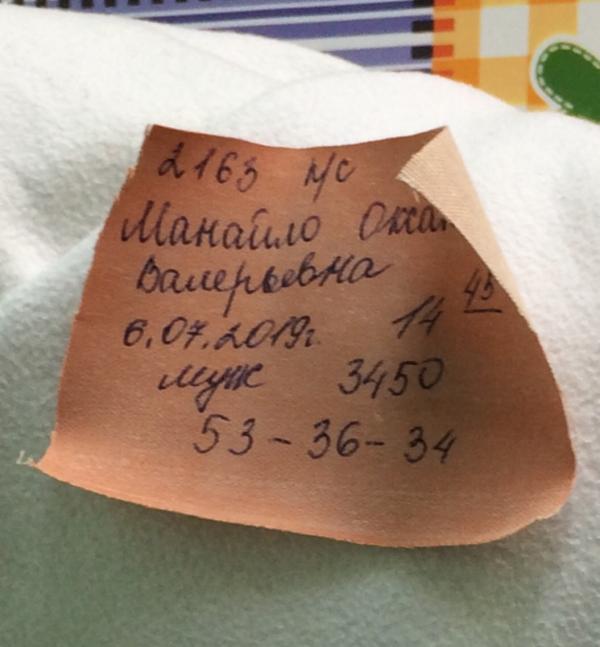 2163 п/с
Манайло Оксан
Валерьевна
6.07.2019г. 14 45
муж 3450
53-36-34